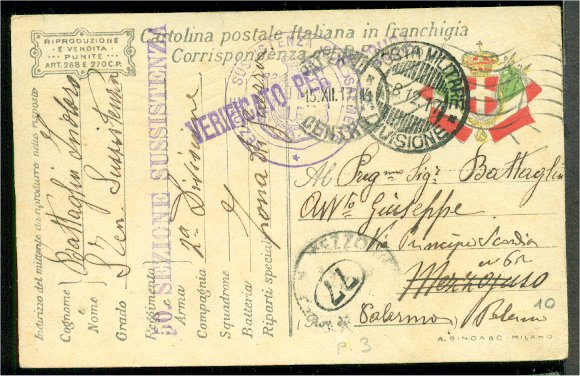 RIPRODUZIONE
E VENDITA
PUNITE
ART. 268 E 270 C.P.
Cartolina postale Italiana in franchigia
Corrispondenza del R.
VERIFICATO PER
15.XII.17
POSTA MILITARE
8.12.17
DIVISIONE
Al Preg.mo Sig.r Battaglia
Avv.to Giuseppe
Via Principe Scordia
Mezzojuso
Palermo
Palermo
77
10
P. 3
A. BINDA & C - MILANO
Indirizzo del mittente da riprodurre nella risposta
Cognome Battaglia
Nome
Grado S. Ten. Sussistenza
50 SEZIONE SUSSISTENZA
Reggimento
Arma
Compagnia 2a Divisione
Squadrone
Batteria
Riparti speciali Zona di guerra